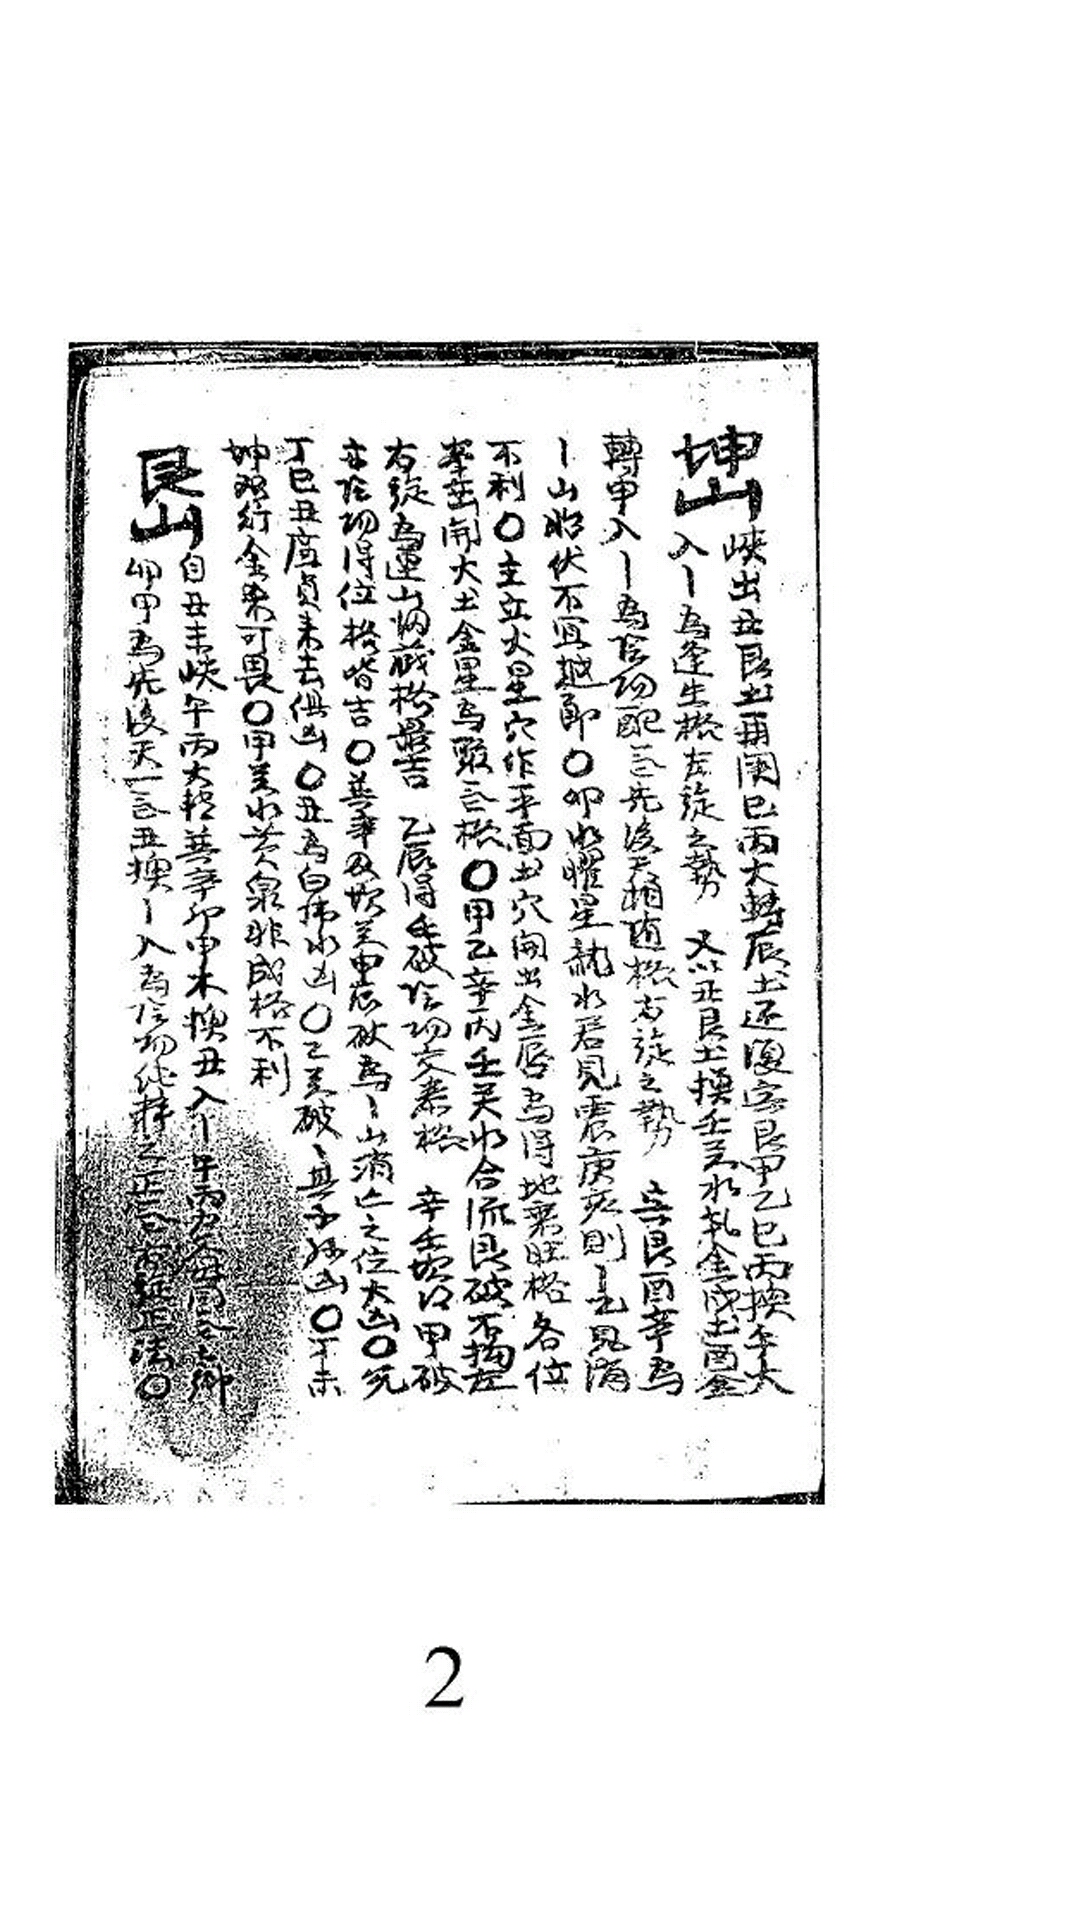 坤山
峽出丑艮土再開巳丙大轉辰土还復穴艮甲乙巳丙換午大
入丨為逢生格左旋之勢 又以丑艮土換壬癸水乳金戌土酉金
轉申入丨為陰陽配合先後天相随格右旋之勢 亥艮酉辛為
丨山胎伏不宜越節〇卯水曜星龍水若見震庚亥則丨 見消
不利〇主立火星穴作平面土穴開出金唇為得地乘旺格各位
峯出開大土金星為聚合格〇甲乙辛丙壬关水合流艮破不拘左
右旋為連山炳蔚格最吉 乙辰得壬破陰陽交泰格 辛壬坎口甲破
亦陰陽得位格皆吉〇巽辛及坎癸申辰破為丨山消亡之位大凶〇先
丁巳丑廉貞来去俱凶〇丑為白虎水凶〇乙癸破丨 其子孫凶〇丁未
坤 行金来可畏〇甲癸水黄泉非成格不利
艮山
自丑未峽午丙大轉巽辛卯甲木換丑入丨午丙为 同合之鄉
卯甲為先後天一合丑換丨入為陰陽純粹之正合右旋正法〇
2